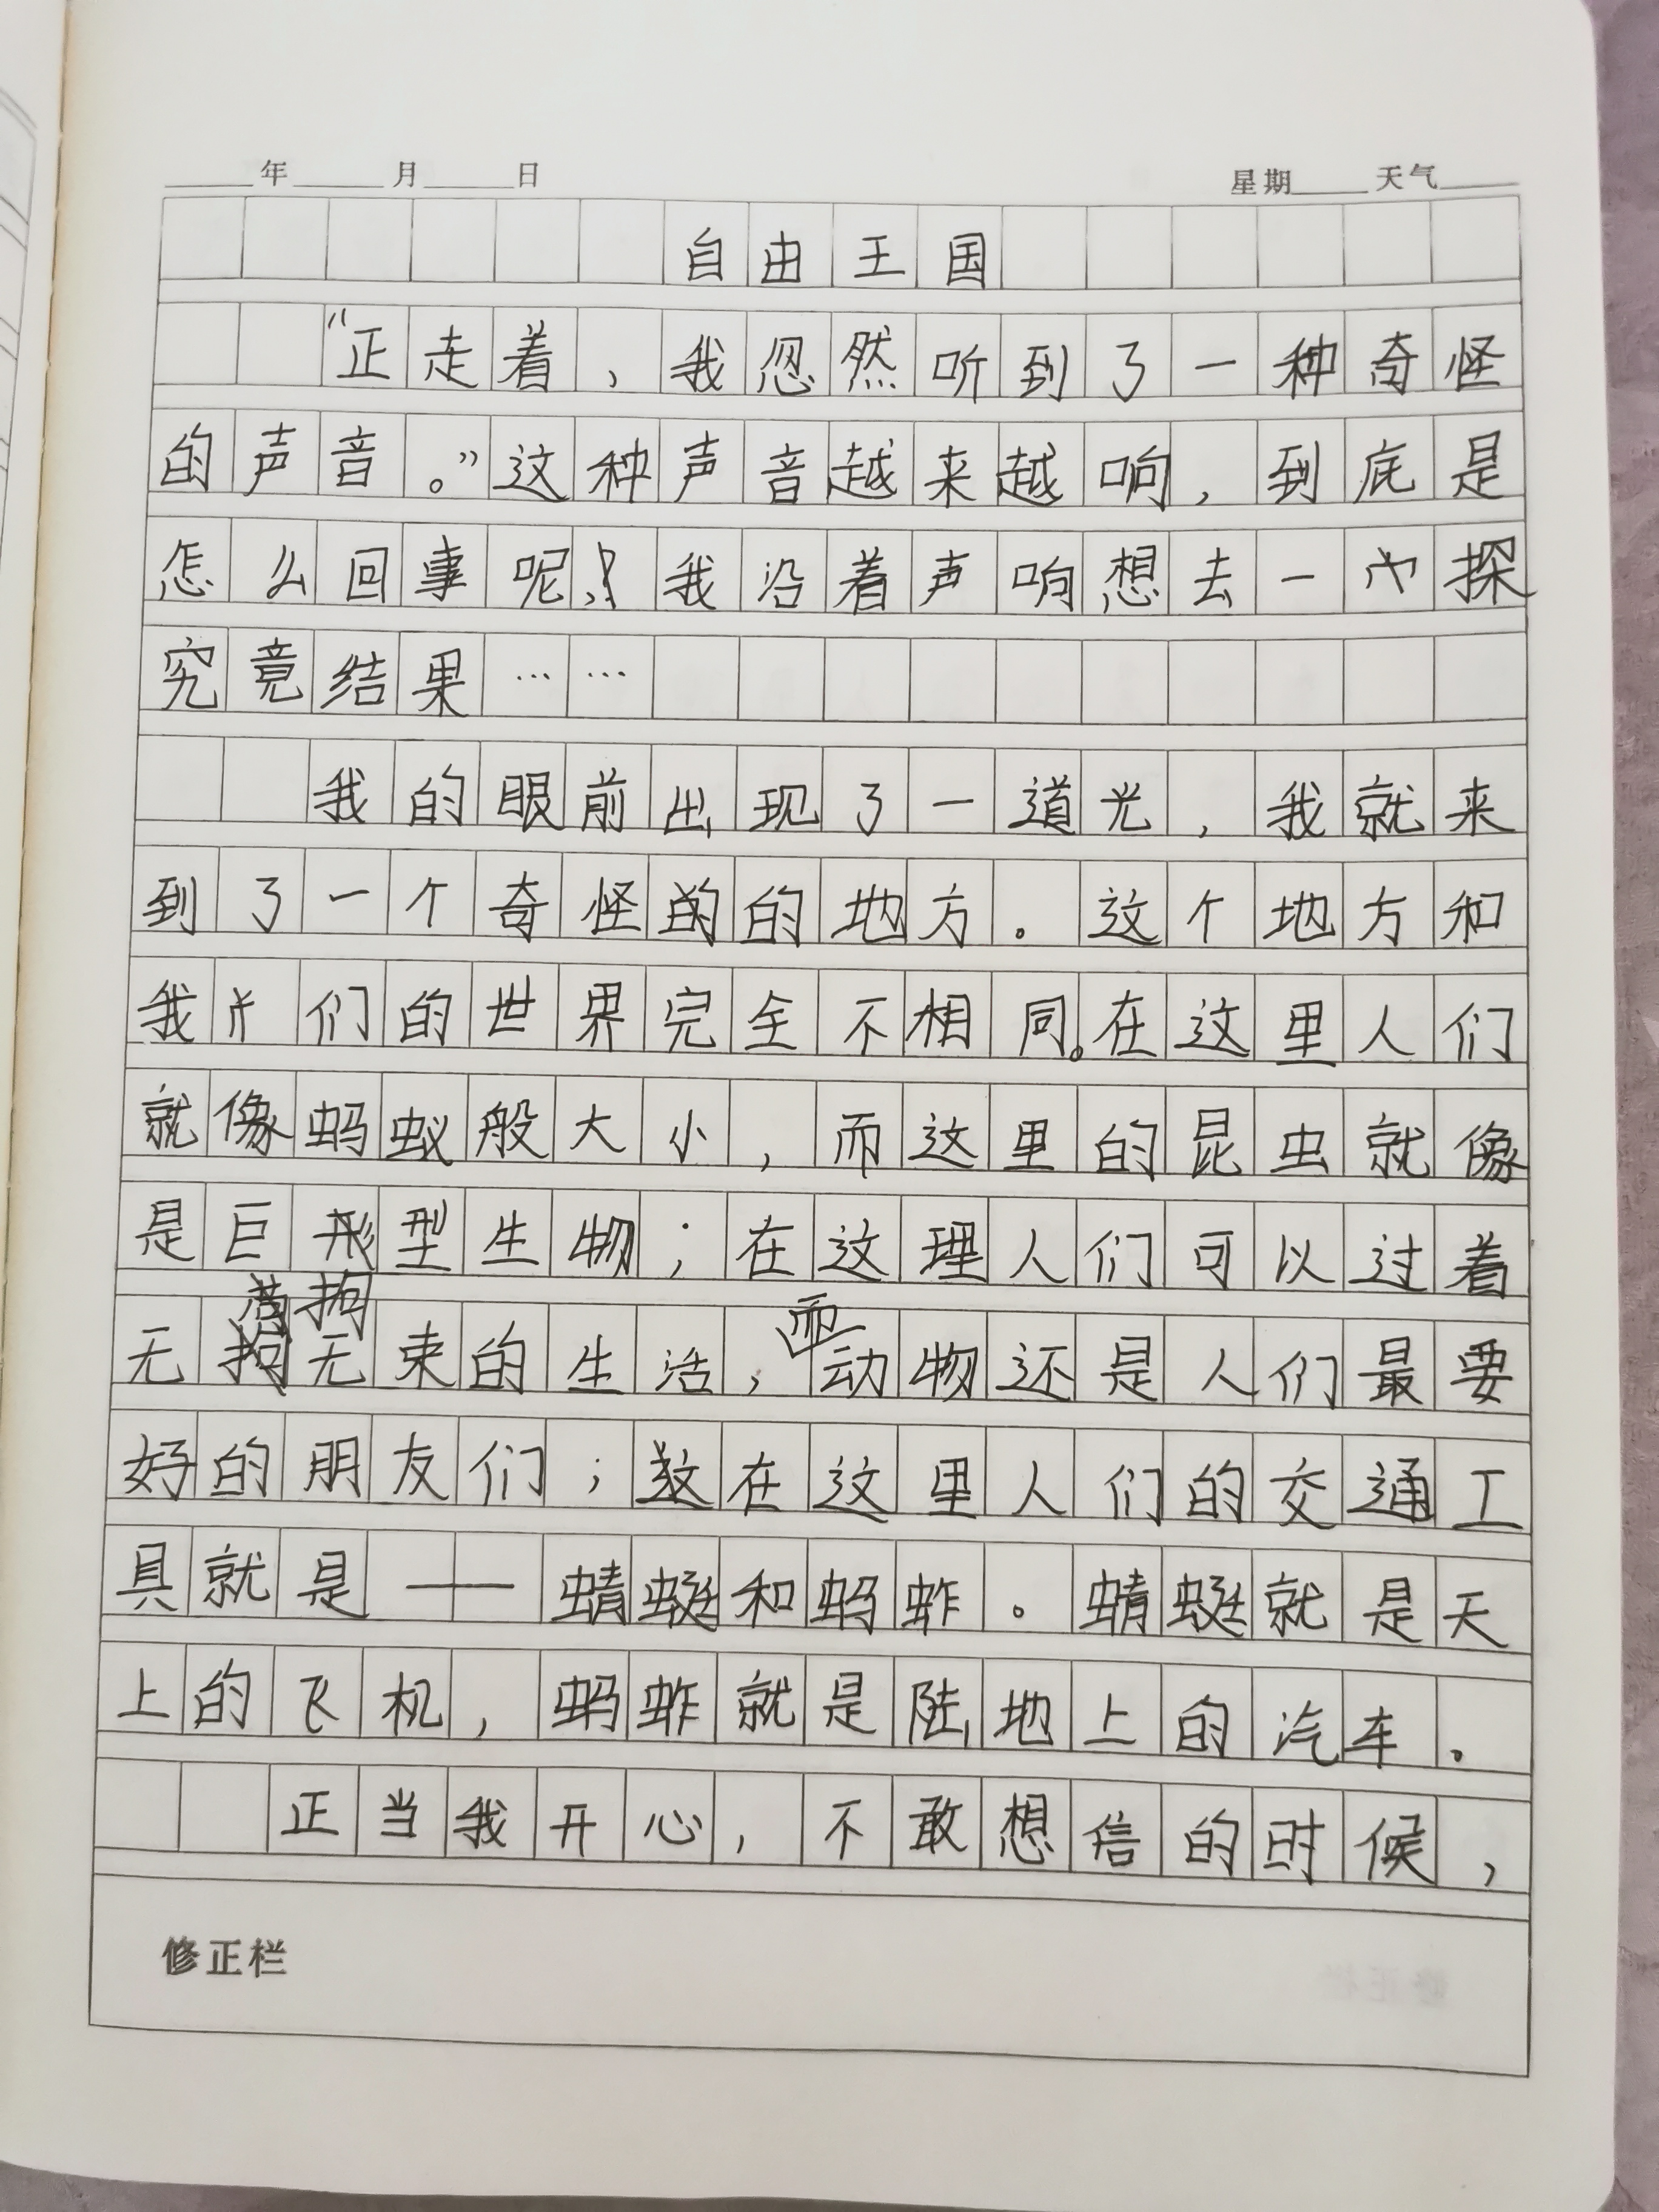 年 月 日 星期 天气
自由王国
“正走着，我忽然听到了一种奇怪
的声音。”这种声音越来越响，到底是
怎么回事呢！我沿着声响想去一探
究竟结果……
我的眼前出现了一道光，我就来
到了一个奇怪的地方。这个地方和
我们的世界完全不相同。在这里人们
就像蚂蚁般大小，而这里的昆虫就像
是巨型生物；在这理人们可以过着
无拘无束的生活，而动物还是人们最要
好的朋友们；在这里人们的交通工
具就是——蜻蜓和蚂蚱。蜻蜓就是天
上的飞机，蚂蚱就是陆地上的汽车。
正当我开心，不敢想信的时候，
修正栏